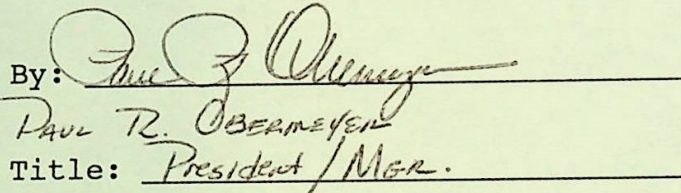 By: Paul R Obermeyer
PAUL R. OBERMEYER
Title: President / MGR.